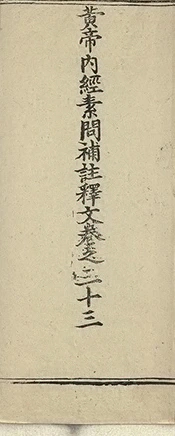 黃帝內經素問補註釋文卷之二十三